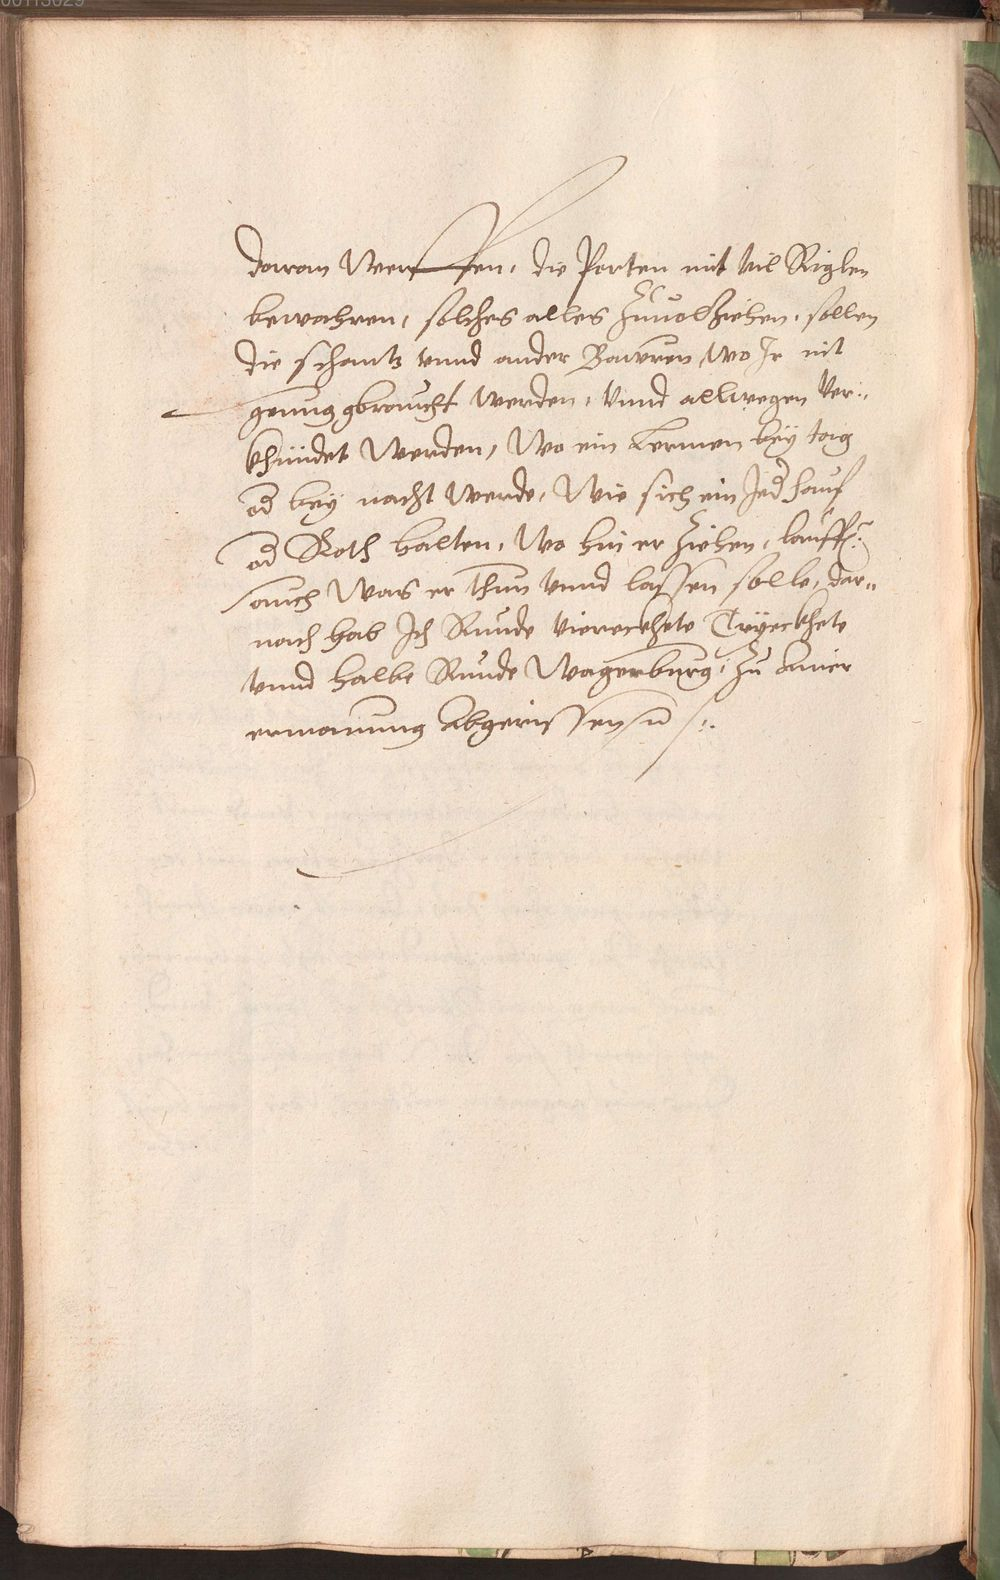 00113029
daran Werffen, die Porten mit vil Riglen
bewahren, solches alles zuuolziehen, sollen
die schantz vnnd ander Bauren, wo Ir nit
genug gbraucht werden, Vnnd allwegen Ver„
khündet Werden, Wo ein Lermen bey tag
od bey nacht Werde, Wie sich ein Jed hauf
od Roth halten, Wo hin er ziehen, lauff
auch Was er thun vnnd lassen solle, dar„
nach hab Ich Runde viereckhete Tryeckhete
vnnd halbe Runde Wagenburg, zu
ermanung Abgerissen